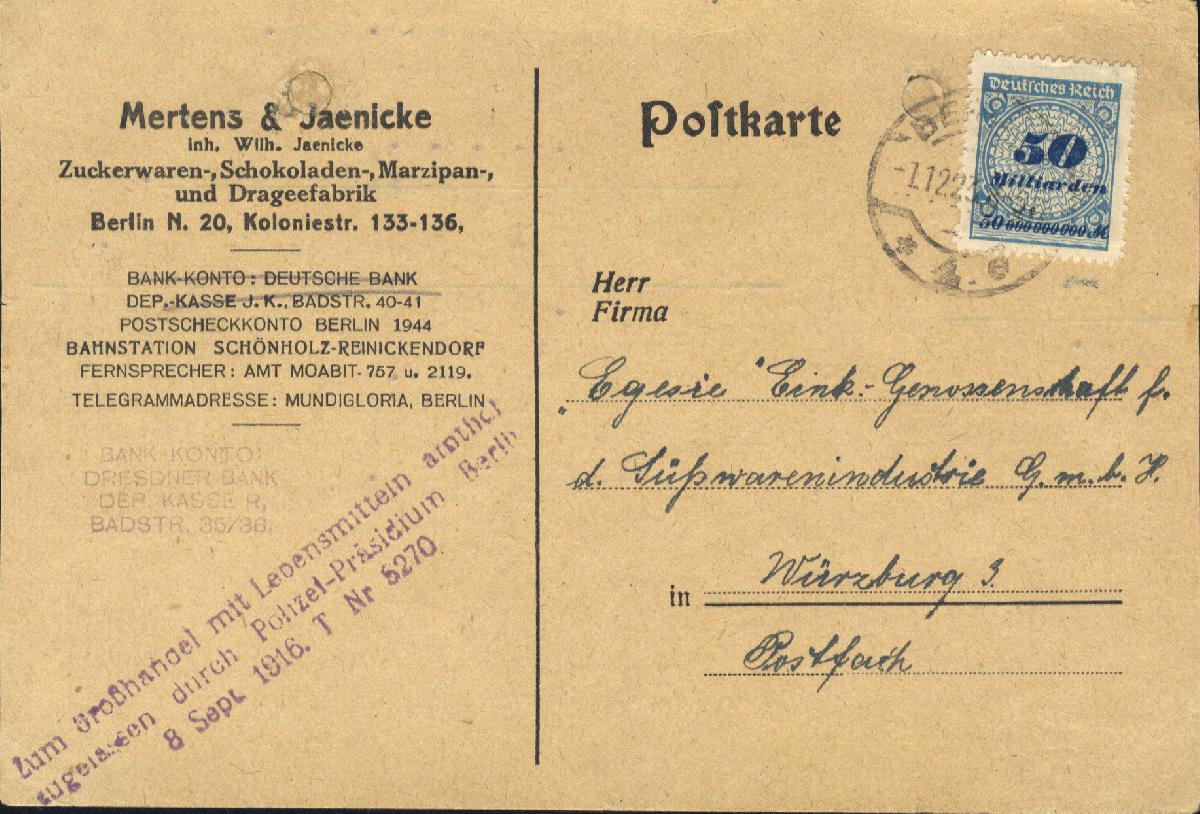 Mertens & Jaenicke
Inh. Wilh. Jaenicke
Zuckerwaren-, Schokoladen-, Marzipan-,
und Drageefabrik
Berlin N. 20, Koloniestr. 133-136,
BANK-KONTO: DEUTSCHE BANK
DEP.-KASSE J. K., BADSTR. 40-41
POSTSCHECKKONTO BERLIN 1944
BAHNSTATION SCHÖNHOLZ-REINICKENDORF
FERNSPRECHER: AMT MOABIT 757 u. 2119.
TELEGRAMMADRESSE: MUNDIGLORIA, BERLIN
BANK-KONTO:
DRESDNER BANK
DEP. KASSE R,
BADSTR. 35/36.
Zum Großhandel mit Lebensmitteln
zugelassen durch Polizei-Präsidium Berlin
8 Sept. 1916. T Nr 5270
Poſtkarte
Deutſches Reich
50
Milliarden
50 000 000 000 M
-1.12.23.
Herr
Firma
„Egesie" Eink.-Genossenschaft f.
d. Süßwarenindustrie G. m. b. H.
in Würzburg 3.
Postfach